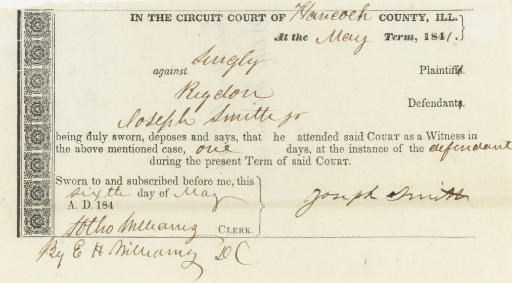 IN THE CIRCUIT COURT OF Hancock COUNTY, ILL.
At the May Term, 1841.
Singly
against Plaintiff.
Rigdon
Defendant.
Joseph Smith jr
being duly sworn, deposes and says, that he attended said COURT as a Witness in
the above mentioned case, one days, at the instance of the defendant
during the present Term of said COURT.
Sworn to and subscribed before me, this
sixth day of May
A. D. 184
Joseph Smith
Williams CLERK.
By E H Williams D C